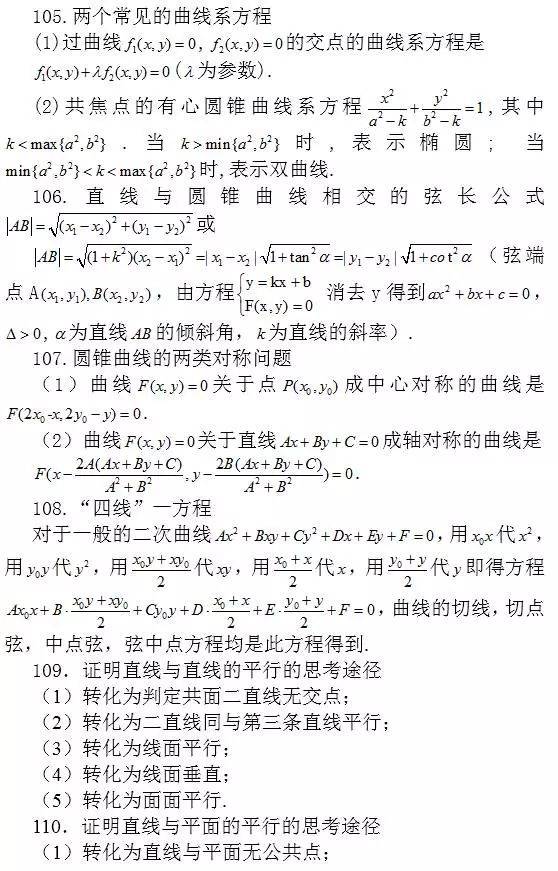 105.两个常见的曲线系方程
(1)过曲线f₁(x,y)=0, f₂(x,y)=0的交点的曲线系方程是
f₁(x,y)+λf₂(x,y)=0(λ为参数).
(2)共焦点的有心圆锥曲线系方程 x²/(a²−k)+y²/(b²−k)=1, 其中
k<max{a²,b²}. 当 k>min{a²,b²} 时, 表示椭圆; 当
min{a²,b²}<k<max{a²,b²}时,表示双曲线.
106. 直线与圆锥曲线相交的弦长公式
|AB|=√((x₁−x₂)²+(y₁−y₂)²)或
|AB|=√((1+k²)(x₂−x₁)²)=|x₁−x₂|√(1+tan²α)=|y₁−y₂|√(1+cot²α)（弦端
点A(x₁,y₁),B(x₂,y₂)，由方程{y=kx+b F(x,y)=0 消去y得到ax²+bx+c=0，
Δ>0,α为直线AB的倾斜角，k为直线的斜率）.
107.圆锥曲线的两类对称问题
（1）曲线F(x,y)=0关于点P(x₀,y₀)成中心对称的曲线是
F(2x₀-x,2y₀−y)=0.
（2）曲线F(x,y)=0关于直线Ax+By+C=0成轴对称的曲线是
F(x−2A(Ax+By+C)/(A²+B²),y−2B(Ax+By+C)/(A²+B²))=0.
108.“四线”一方程
对于一般的二次曲线Ax²+Bxy+Cy²+Dx+Ey+F=0,用x₀x代x²,
用y₀y代y²,用(x₀y+xy₀)/2代xy,用(x₀+x)/2代x,用(y₀+y)/2代y即得方程
Ax₀x+B·(x₀y+xy₀)/2+Cy₀y+D·(x₀+x)/2+E·(y₀+y)/2+F=0,曲线的切线,切点
弦,中点弦,弦中点方程均是此方程得到.
109．证明直线与直线的平行的思考途径
（1）转化为判定共面二直线无交点；
（2）转化为二直线同与第三条直线平行；
（3）转化为线面平行；
（4）转化为线面垂直；
（5）转化为面面平行.
110．证明直线与平面的平行的思考途径
（1）转化为直线与平面无公共点；